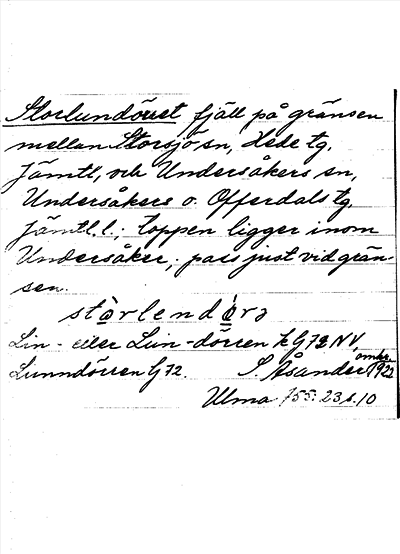 Storlundörret fjäll på gränsen
mellan Storsjö sn, Hede tg,
Jämtl, och Undersåkers sn,
Undersåkers o. Offerdals tg,
Jämtl. l.; toppen ligger inom
Undersåker, pass just vid grän-
sen.
stòrlendǿrə
Lin- eller Lun-dörren k G 72 NV,
Lunndörren G 72. S. Åsander omkr. 1922
Ulma 155: 23,1.10